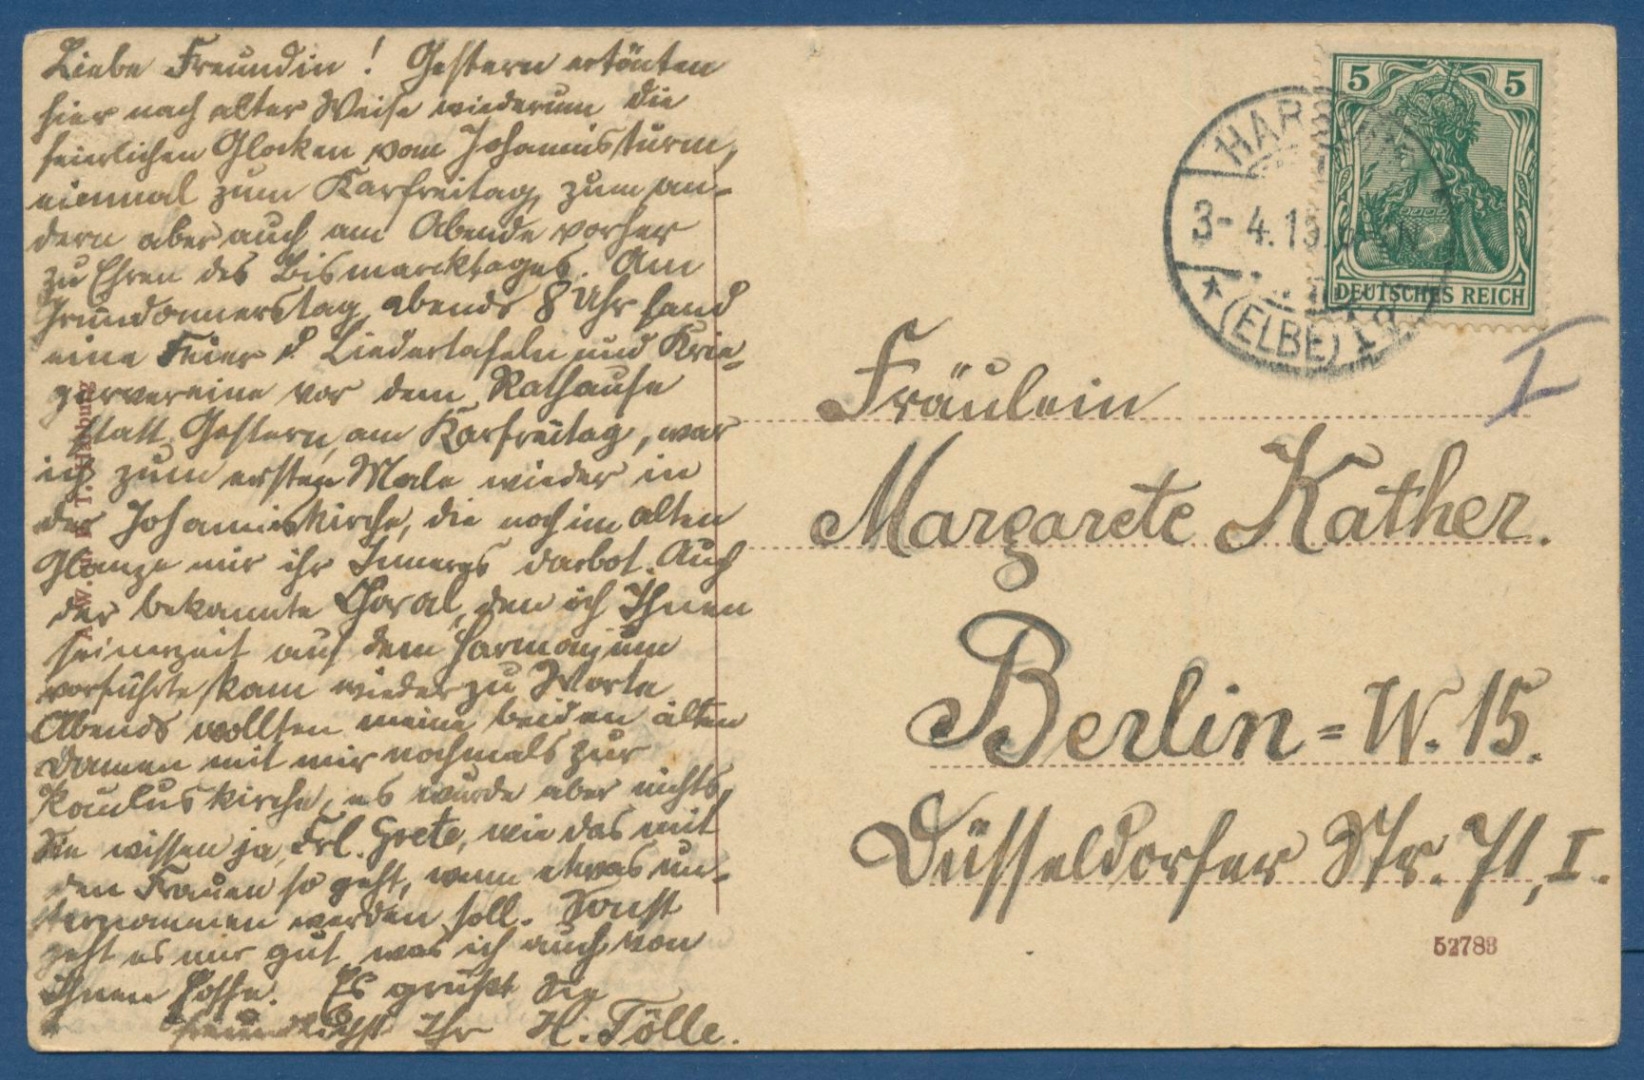 Liebe Freundin! Gestern ertönten
hier nach alter Weise wiederum die
feierlichen Glocken vom Johannisturm,
einmal zum Karfreitag, zum an-
dern aber auch am Abende vorher
zu Ehren des Bismarcktages. Am
Gründonnerstag abends 8 Uhr fand
eine Feier d Liedertafeln und Krie-
gervereine vor dem Rathause
statt. Gestern, am Karfreitag, war
ich zum ersten Male wieder in
der Johanniskirche, die noch im alten
Glanze mir ihr Inneres darbot. Auch
der bekannte Choral, den ich Ihnen
seinerzeit auf dem Harmonium
vorführte, kam wieder zu Worte.
Abends wollten meine beiden alten
Damen mit mir nochmals zur
Pauluskirche, es wurde aber nichts,
Sie wissen ja, Frl. Grete, wie das mit
den Frauen so geht, wenn etwas un-
ternommen werden soll. Sonst
geht es mir gut, was ich auch von
Ihnen hoffe. Es grüßt Sie
freundlichst Ihr H. Tölle.
5 5
DEUTSCHES REICH
HARB
3-4.15.
(ELBE) 1
I
Fräulein
Margarete Kather.
Berlin=W. 15.
Düsseldorfer Str. 71, I.
52783